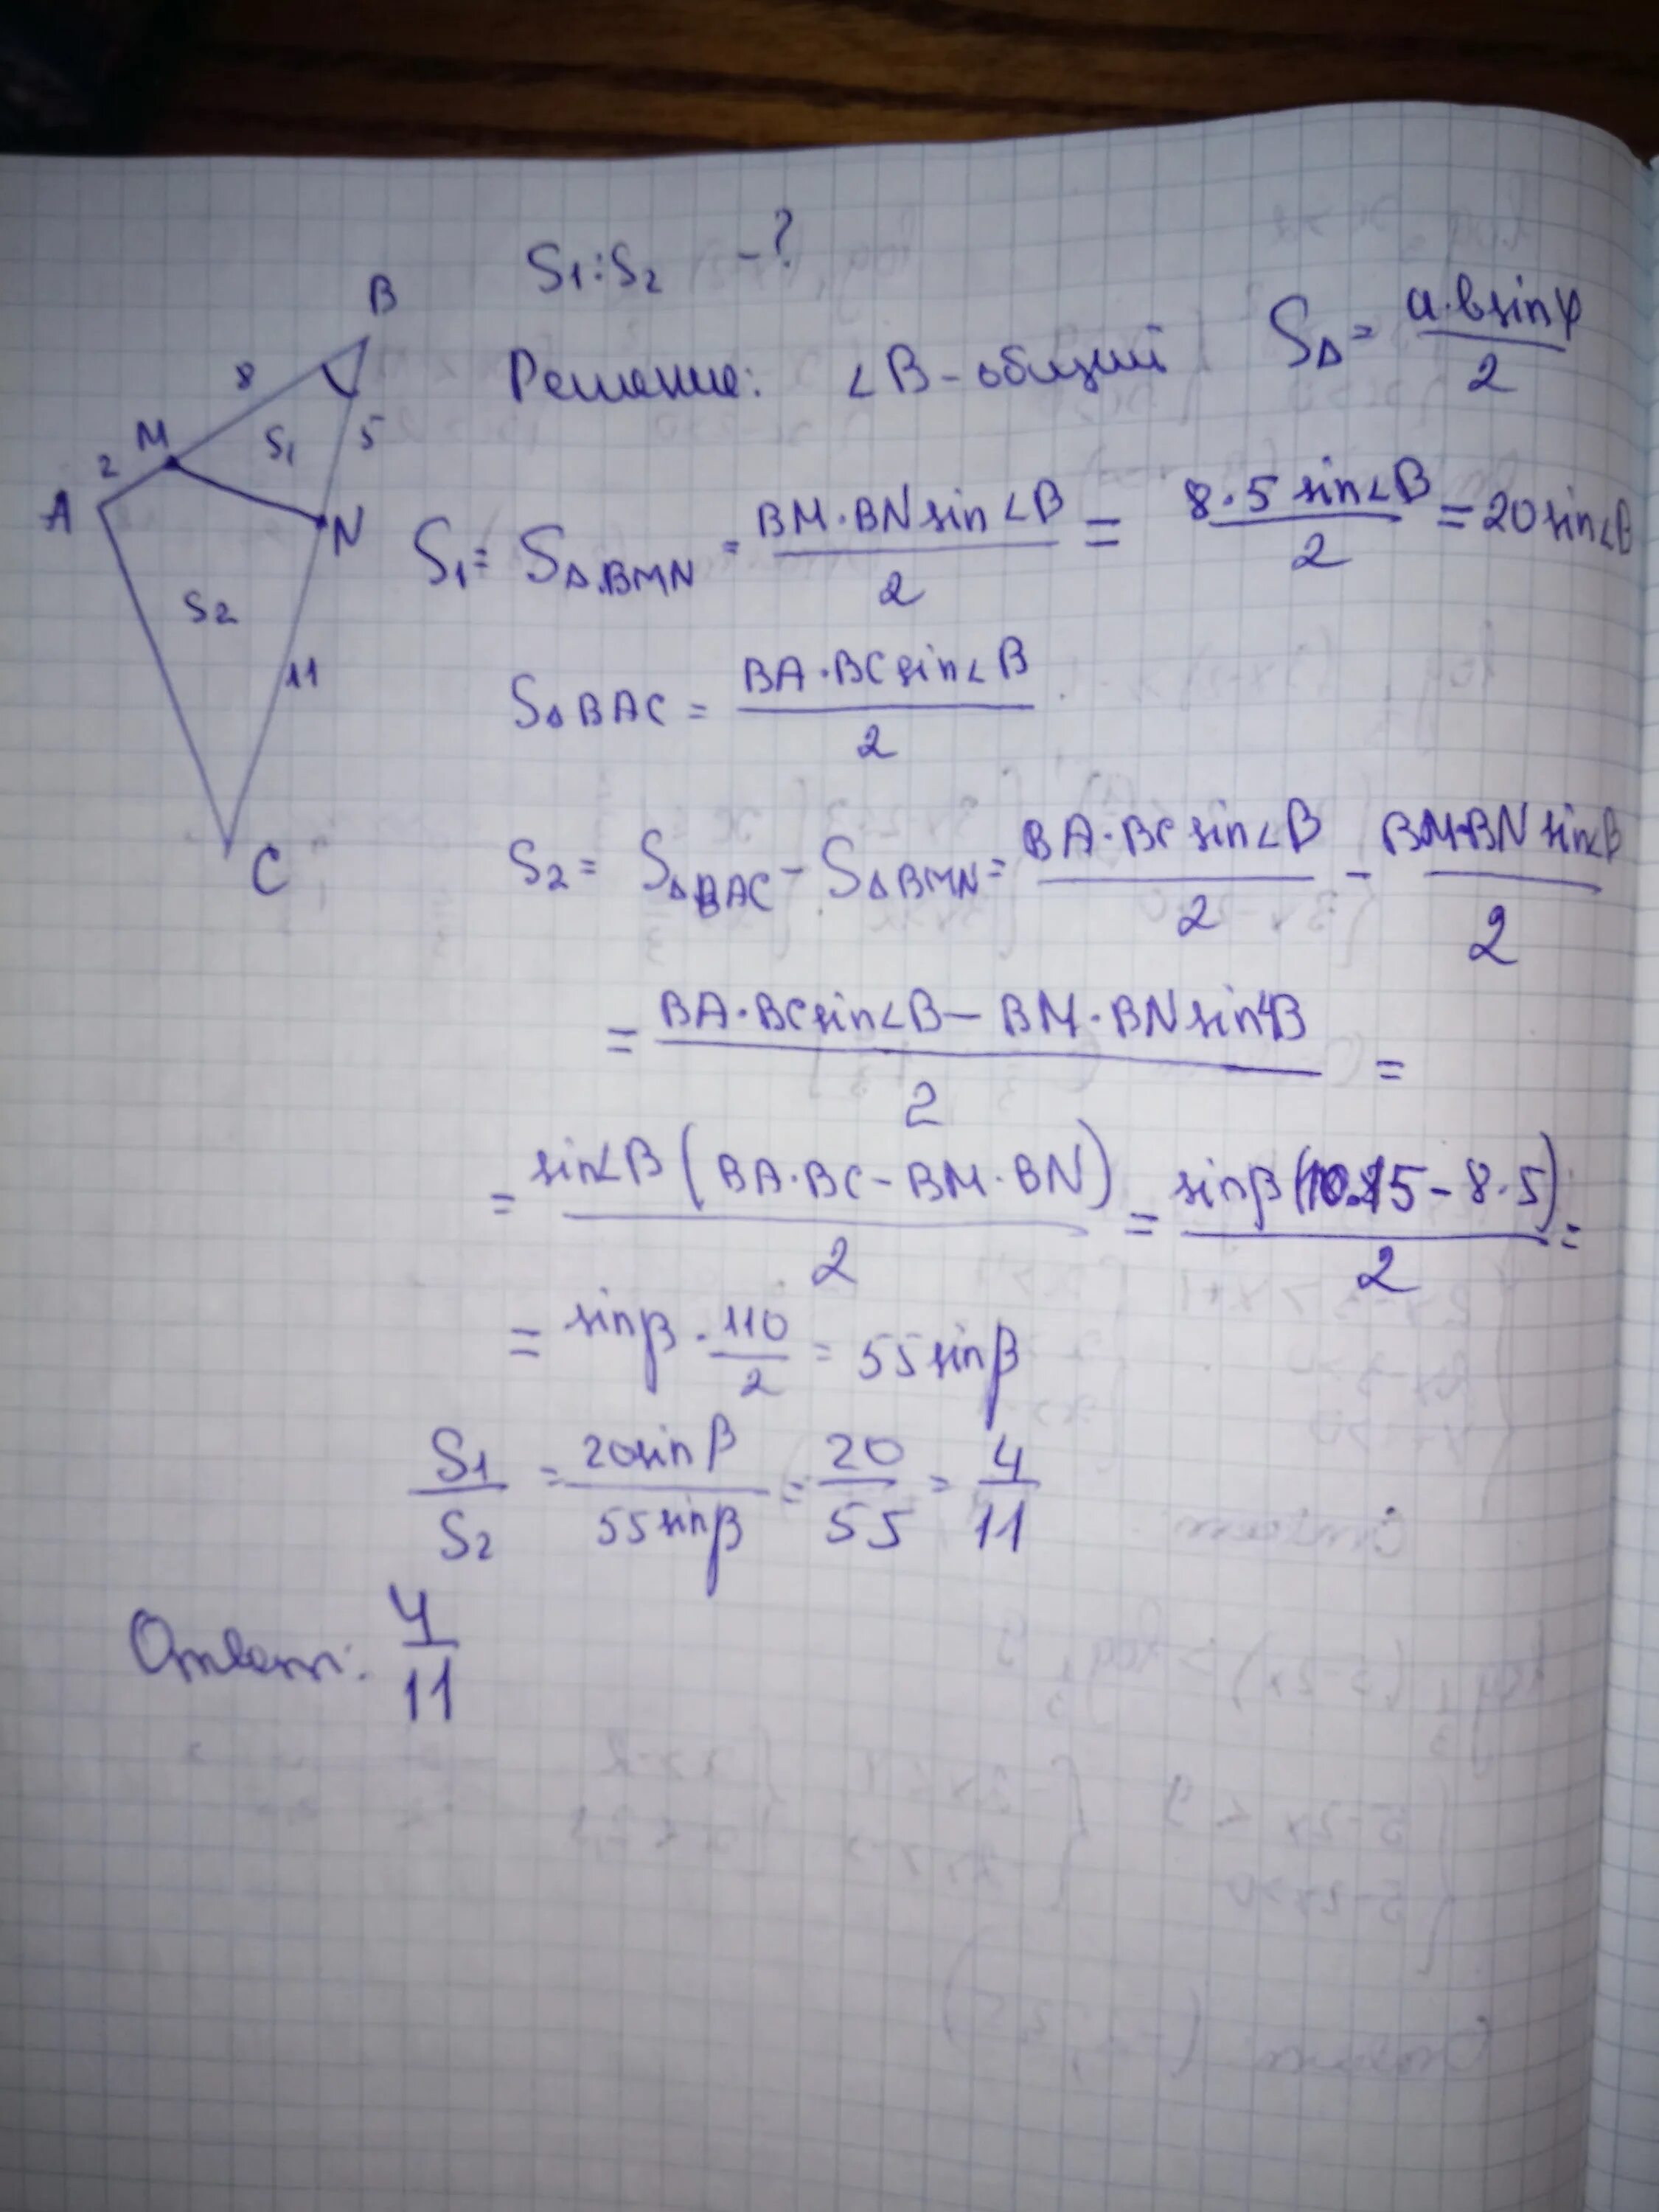 S1:S2 -?
Решение: ∠B-общий S△= a·b sinφ / 2
B
8
M
S1
5
2
A
N
S2
11
C
S1= S△BMN = BM·BN sin∠B / 2 = 8·5 sin∠B / 2 = 20 sin∠B
S△BAC = BA·BC sin∠B / 2
S2= S△BAC - S△BMN = BA·BC sin∠B / 2 - BM·BN sin∠B / 2
= BA·BC sin∠B - BM·BN sin∠B / 2 =
= sin∠B (BA·BC - BM·BN) / 2 = sinβ (10·15 - 8·5) / 2 =
= sinβ · 110 / 2 = 55 sinβ
S1 / S2 = 20 sinβ / 55 sinβ = 20 / 55 = 4 / 11
Ответ: 4 / 11